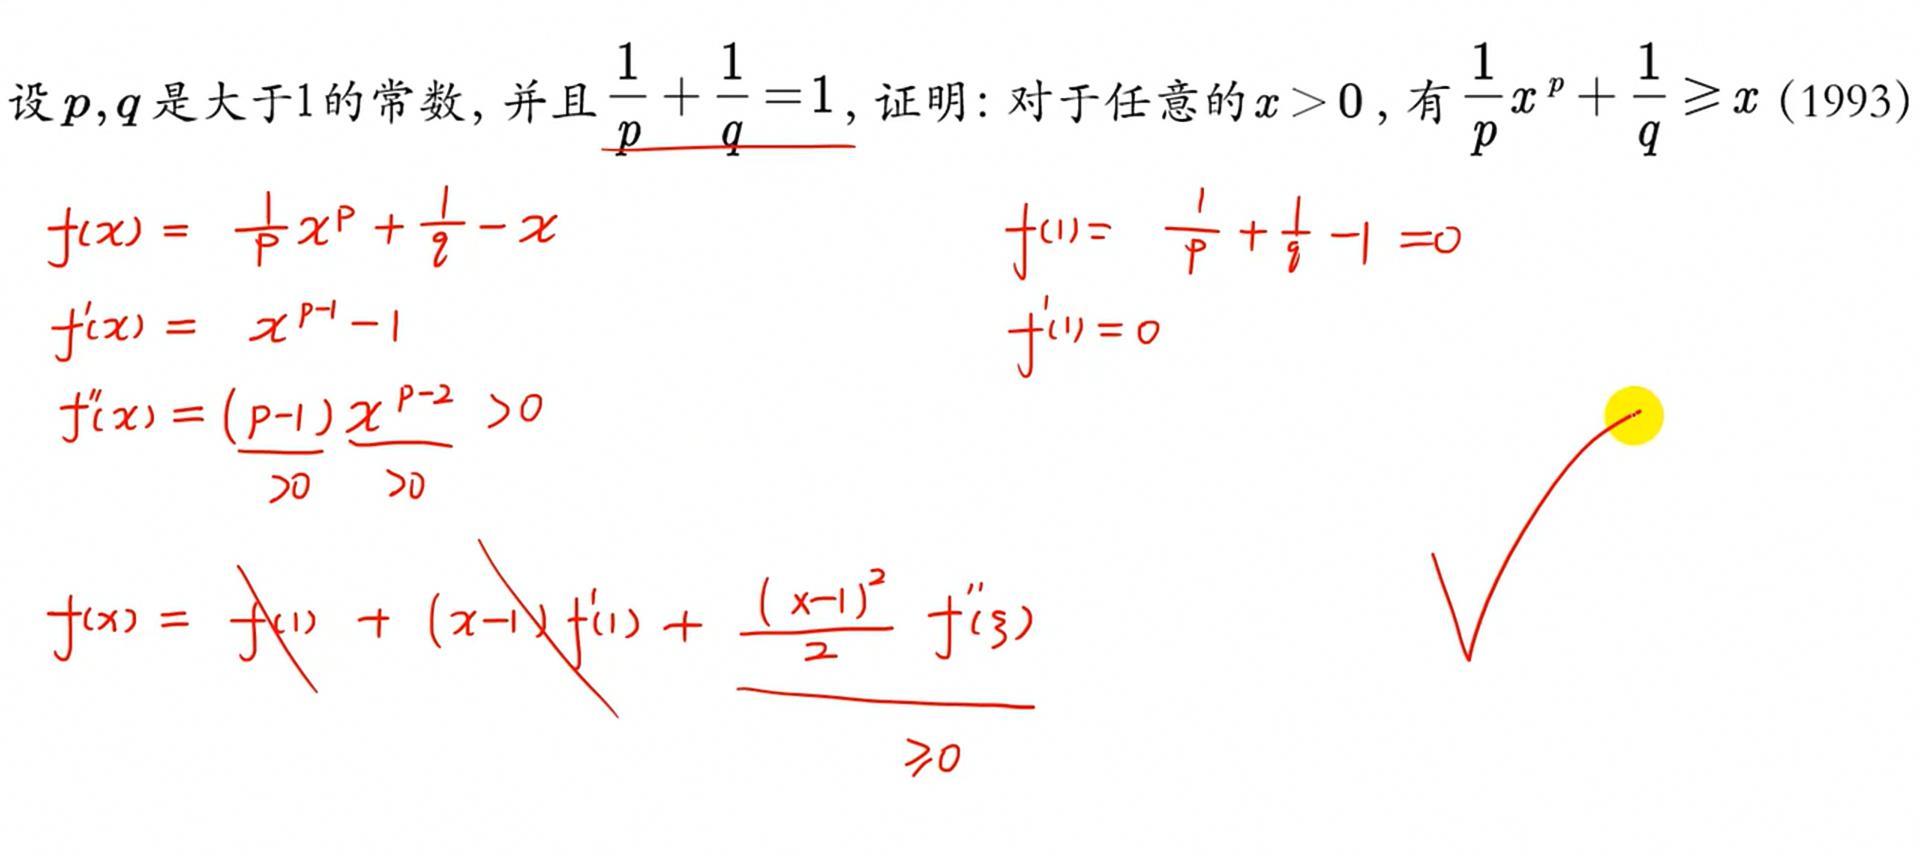 设p,q是大于1的常数, 并且 1/p + 1/q = 1, 证明: 对于任意的x > 0, 有 1/p x^p + 1/q ⩾ x (1993)
f(x) = 1/p x^p + 1/q − x
f(1) = 1/p + 1/q − 1 = 0
f'(x) = x^(p−1) − 1
f'(1) = 0
f''(x) = (p−1) x^(p−2) >0
>0 >0
f(x) = f(1) + (x−1) f'(1) + (x−1)²/2 f''(ξ)
⩾0